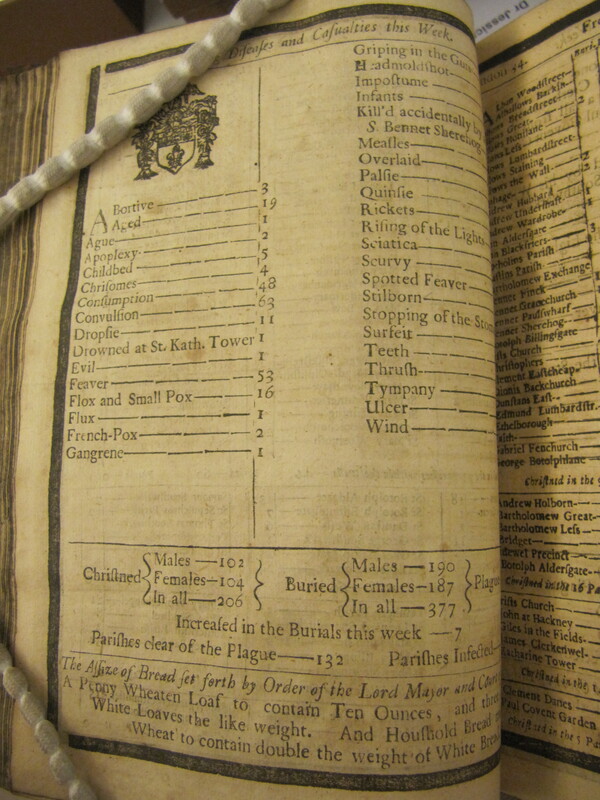 Diseases and Casualties this Week.
Abortive 3
Aged 19
Ague 1
Apoplexy 2
Childbed 5
Chrisomes 4
Consumption 48
Convulsion 63
Dropsie 11
Drowned at St. Kath. Tower 1
Evil 1
Feaver 53
Flox and Small Pox 16
Flux 1
French-Pox 2
Gangrene 1
Griping in the Guts
Headmoldshot
Impostume
Infants
Kill'd accidentally by
S. Bennet Sherehog
Measles
Overlaid
Palsie
Quinsie
Rickets
Rising of the Lights
Sciatica
Scurvy
Spotted Feaver
Stilborn
Stopping of the Stom
Surfeit
Teeth
Thrush
Tympany
Ulcer
Wind
Christned Males 102 Females 104 In all 206
Buried Males 190 Females 187 In all 377 Plague
Increased in the Burials this week 7
Parishes clear of the Plague 132 Parishes Infected
The Assize of Bread set forth by Order of the Lord Mayor and Court
A Penny Wheaten Loaf to contain Ten Ounces, and three
White Loaves the like weight. And Houshold Bread
Wheat to contain double the weight of White Bread
Dr Jessic
Fr
Woodstreet
Breadstreet
Great
Honilane
Less
Lombardstreet
Staining
the Wall
Hubbard
Undershaft
Wardrobe
Aldersgate
Blackfriers
Parish
Parish
Exchange
Finck
Gracechurch
Paulswharf
Sherehog
Billingsgate
Church
Eastcheap
Backchurch
East
Edmund Lumbardstr.
Ethelborough
Gabriel Fenchurch
George Botolphlane
Christned in the 9
Andrew Holborn
Bartholomew Great
Bartholomew Less
Bridget
Bridewel Precinct
Botolph Aldersgate
Christned in the 16 Pa
Christs Church
John at Hackney
Giles in the Fields
James Clerkenwel
Katharine Tower
Christned in the
Clement Danes
Paul Covent Garden
Christned in the 5 Pa